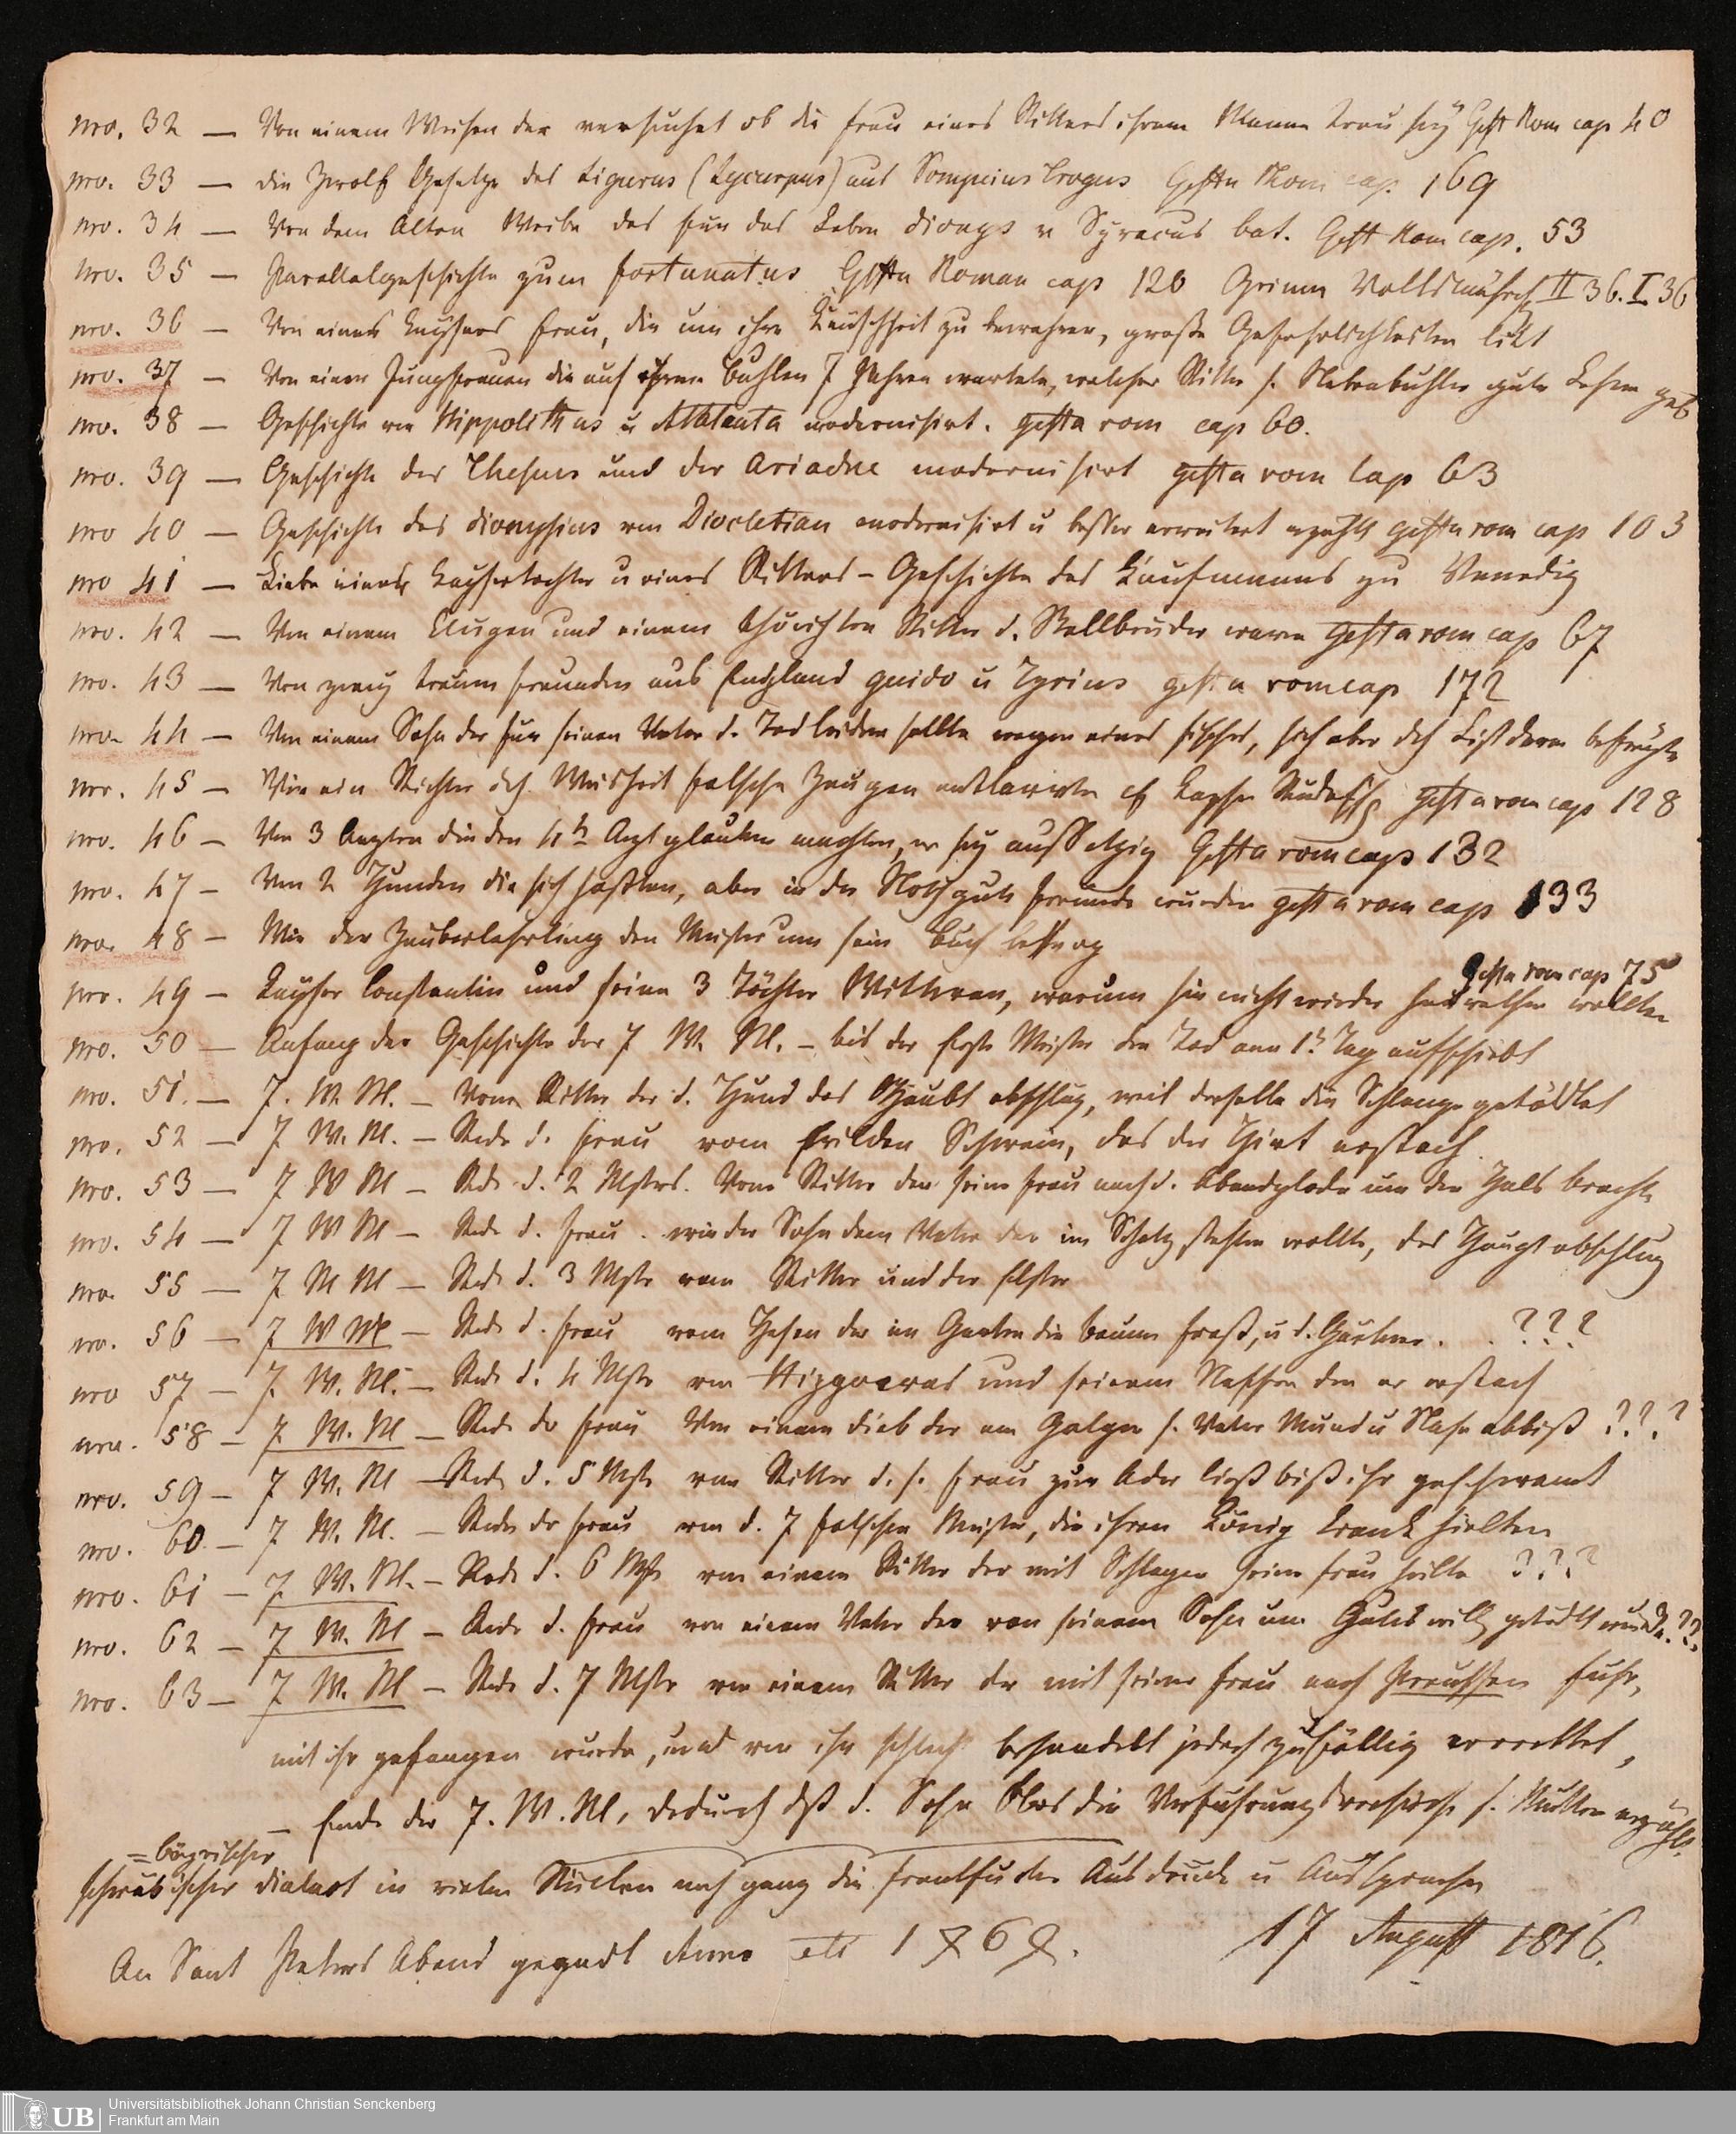 nro. 32 — Von einem Weisen der versuchet ob die Frau eines Ritters ihrem Manne treu sey Gest Rom cap 40
nro. 33 — die Zwolf Gesetze des Ligurus (Lycurgus) aus Pompeius Trogus Gesta Rom cap. 169
nro. 34 — Von dem Alten Weibe das für das Leben dionys v Syracus bat. Gest Rom cap. 53
nro. 35 — Parallelgeschichte zum fortunatus Gesta Roman cap 120 Grimm Volksmährch II 36. I 36
nro. 36 — Von eines Kaysers Frau, die um ihre Keuschheit zu bewahren, große Gefahrlichkeiten litt
nro. 37 — Von einer Jungfrauen die auf ihren Buhlen 7 Jahren wartete, welcher Ritter s. Nebenbuhler gute Lehren gab
nro. 38 — Geschichte von Hippolithus u Athlanta modernisirt. gesta rom cap 60.
nro. 39 — Geschichte des Theseus und der Ariadne modernisirt gesta rom Cap 63
nro 40 — Geschichte des dionysius von Diocletian modernisirt u besser erweitert erzählt gesta rom cap 103
nro 41 — Liebe einer Kaysertochter u eines Ritters – Geschichte des Kaufmanns zu Venedig
nro. 42 — Von einem Klugen und einem thörichten Ritter d. Stallbruder waren Gesta rom cap 67
nro. 43 — Von zwey treuen freunden aus England guido u Tyrius gesta rom cap 172
nro. 44 — Von einem Sohn der für seinen Vater d. Tod leiden sollte wegen eines Fisches, sich aber dch List davon befreyte
nro. 45 — Wie ein Richter dch Weisheit falsche Zeugen entlarvte cf Kayser Rudolph gesta rom cap 128
nro. 46 — Von 3 Aerzten die den 4t Arzt glauben machten, er sey aussätzig Gesta rom cap 132
nro. 47 — Von 2 Hunden die sich haßten, aber in der Noth gute freunde wurden gesta rom cap 133
nro. 48 — Wie der Zauberlehrling den Meister um sein Buch betrog
Gesta rom cap 75
nro. 49 — Kayser Constantin und seine 3 Töchter Wittwen, warum sie nicht wieder heurathen wollten
nro. 50 — Anfang der Geschichte der 7 W. M. – bis der erste Meister den Tod am 1t Tag aufschiebt
nro. 51. — 7. W. M. — Vom Ritter der d. Hund das Haubt abschlug, weil derselbe die Schlange getödtet
nro. 52 — 7 W. M. — Rede d. Frau vom wilden Schwein, das der Hirt erstach.
nro. 53 — 7 W M — Rede d. 2 Mstrs. Vom Ritter den seine Frau nach d. Abendglocke um den Hals brachte
nro. 54 — 7 W M — Rede d. Frau. wie der Sohn dem Vater der im Schatz stehlen wollte, das Haupt abschlug
nro. 55 — 7 W M — Rede d. 3 Mstr vom Ritter und der Elster
nro. 56 — 7 W M — Rede d. Frau vom Hasen der im Garten die Baume fraß, u d. Gartner. . ???
nro 57 — 7. W. M. — Rede d. 4 Mstr von Hippocras und seinem Neffen den er erstach
nro. 58 — 7. W. M — Rede der Frau Von einem dieb der am Galgen s. Vater Mund u Nase abbiß ???
nro. 59 — 7 W. M — Rede d. 5 Mstr vom Ritter d. s. Frau zur Ader ließ biß ihr geschwand
nro. 60. — 7 W. M. — Rede der Frau von d. 7 falschen Meister, die ihren König krank hielten
nro. 61 — 7 W. M. — Rede d. 6 Mstr von einem Ritter der mit Schlagen seine Frau heilte ???
nro. 62 — 7 W. M — Rede d. Frau von einem Vater der von seinem Sohn um Guts will getödtet wurde. ???
nro. 63 — 7 W. M — Rede d. 7 Mstr von einem Ritter der mit seiner Frau nach Preussen fuhr,
mit ihr gefangen wurde, und von ihr schlecht behandelt jedoch zufällig errettet,
— Ende der 7. W. M, dadurch daß d. Sohn die s. Mutter erzählt.
= bäyrischer
schwäbischer dialect in vielen Stücken noch ganz die frankfurter Ausdrücke u Aussprache
An Sant Peters Abend geendt Anno etc 1868.
17 August 1816.
Universitätsbibliothek Johann Christian Senckenberg
Frankfurt am Main
UB